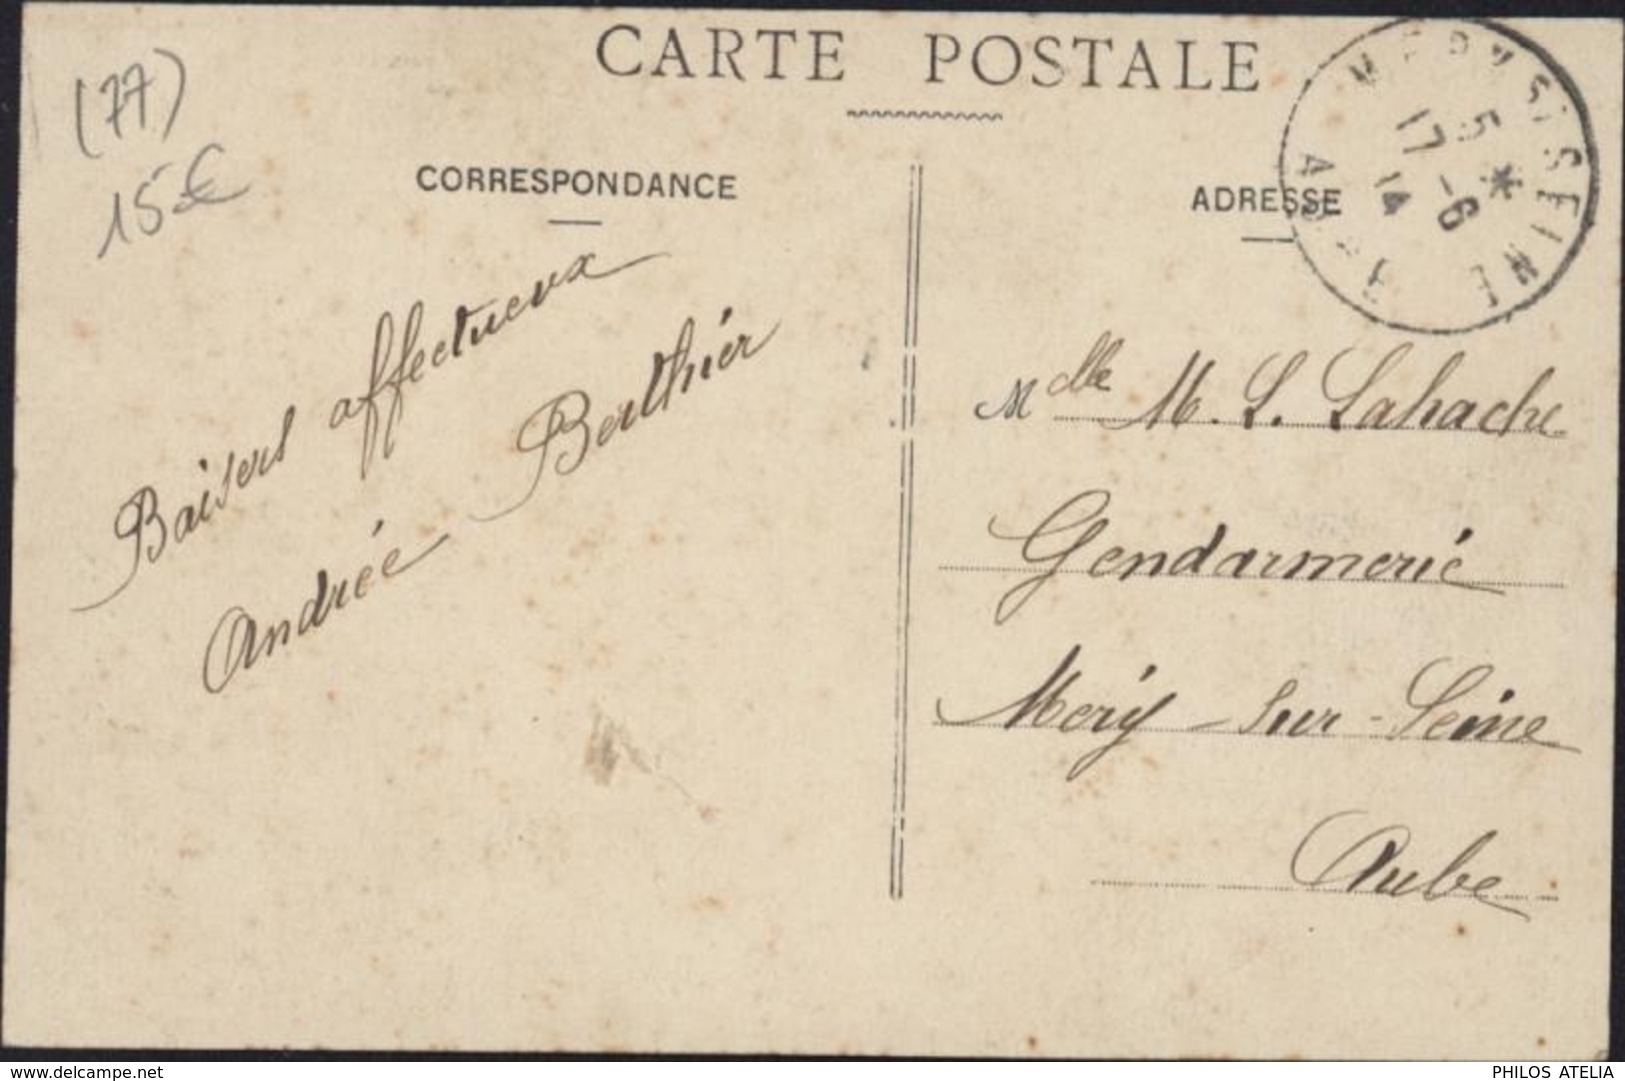 CARTE POSTALE
(77)
15€
CORRESPONDANCE
Baisers affectueux
Andrée Berthier
ADRESSE
5 *
17 -6
14
AUBE
Mdlle M. L. Lahache
Gendarmerie
Mery-sur-Seine
Aube
www.delcampe.net
PHILOS ATELIA